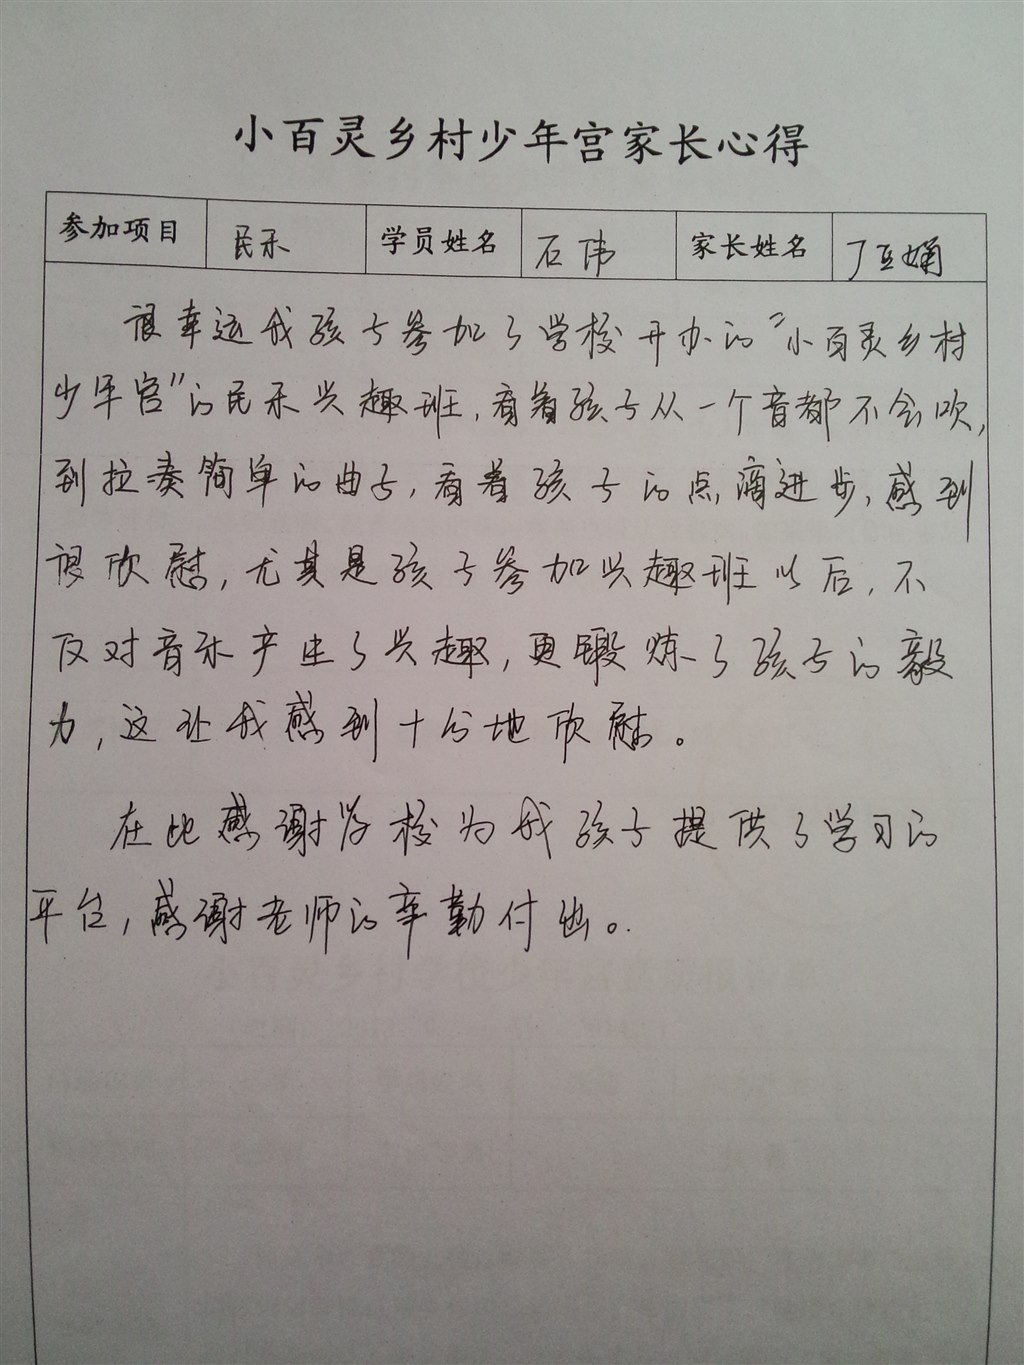 小百灵乡村少年宫家长心得
参加项目 民乐 学员姓名 石伟 家长姓名 丁亚娟
很幸运我孩子参加了学校开办的"小百灵乡村
少年宫"的民乐兴趣班,看着孩子从一个音都不会吹,
到拉奏简单的曲子,看着孩子的点滴进步,感到
很欣慰,尤其是孩子参加兴趣班以后,不
反对音乐产生了兴趣,更锻炼了孩子的毅
力,这让我感到十分地欣慰。
在此感谢学校为我孩子提供了学习的
平台,感谢老师的辛勤付出。